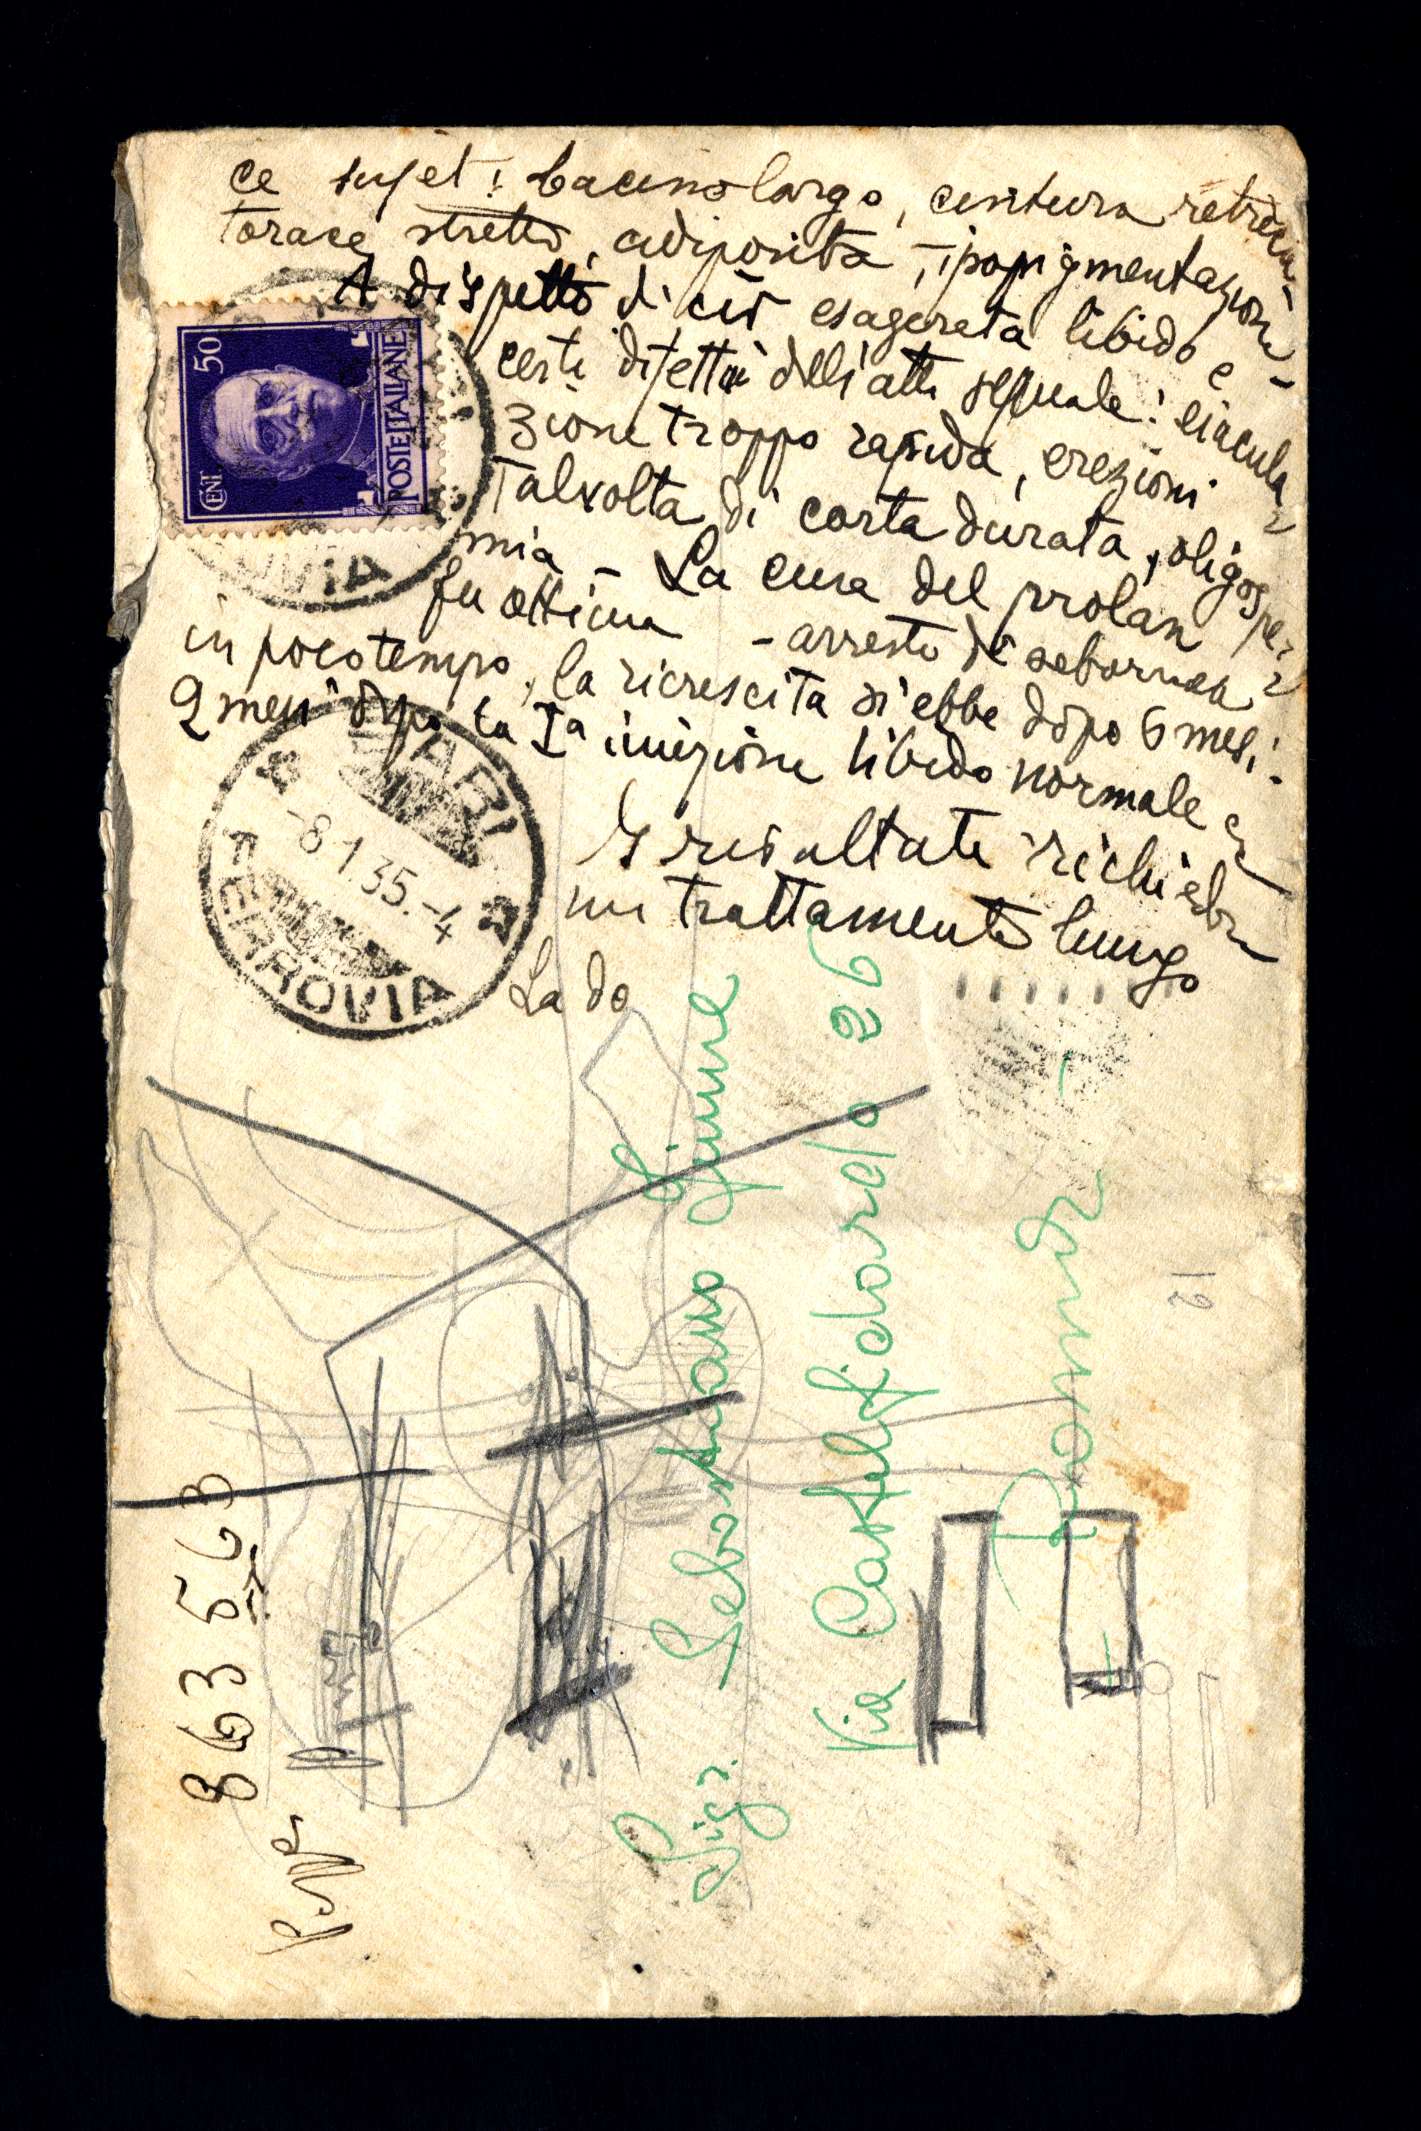 ce sujet : bacino largo, cintura retreci-
torace stretto, adiposità, ipopigmentazione -
A dispetto di ciò esagerata libido e
certi difetti dell'atto sessuale : eiacula=
zione troppo rapida, erezioni
talvolta di corta durata, oligosper=
mia - La cura del prolan
fu ottima - arresto di seborrea
in poco tempo, la ricrescita si ebbe dopo 6 mesi.
2 mesi dopo la Ia iniezione libido normale
I risultati richiedono
un trattamento lungo
La do
CENT. 50
POSTE ITALIANE
BARI
-8.1.35.-4
FERROVIA
Sigr. Sebastiano Timne
Via Castelfidardo 26
Roma -
863 563
12